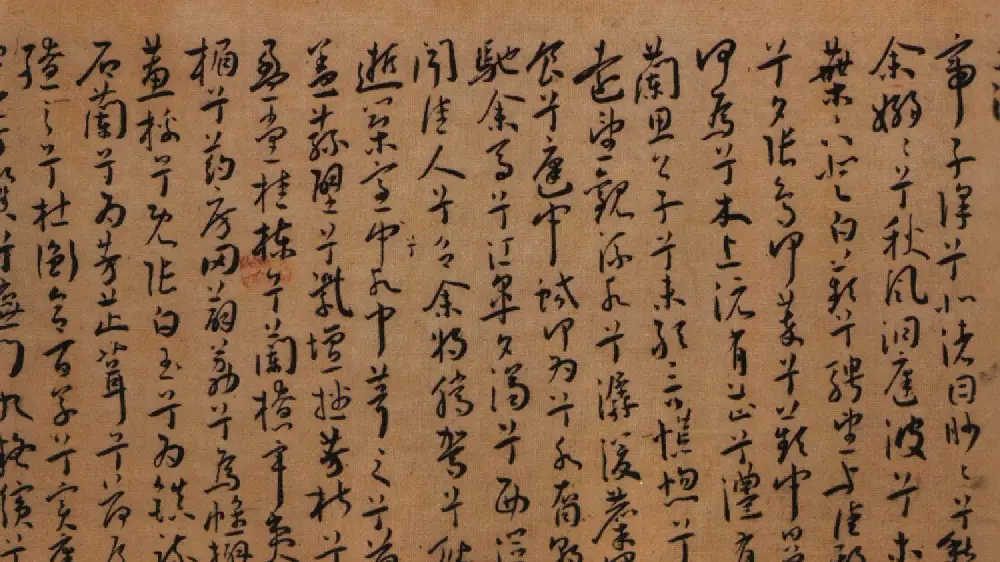 帝子降兮北渚目眇々兮愁
余嫋々兮秋風洞庭波兮木
葉下登白薠兮騁望与佳期
兮夕張鳥何萃兮蘋中罾
何為兮木上沅有芷兮澧有
蘭思公子兮未敢言慌惚兮
遠望觀流水兮潺湲麋何
食兮庭中蛟何為兮水裔朝
馳余馬兮江皋夕濟兮西澨
聞佳人兮召余將騰駕兮偕
逝築室兮水中葺之兮荷
蓋蓀壁兮紫壇播芳椒兮
盈堂桂棟兮蘭橑辛夷
楣兮葯房罔薜荔兮為帷擗
蕙櫋兮既張白玉兮為鎮疏
石蘭兮為芳芷葺兮荷屋
繚之兮杜衡合百草兮實庭
芳馨兮廡門九嶷繽兮